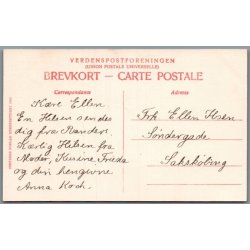 VERDENSPOSTFORENINGEN
(UNION POSTALE UNIVERSELLE)
BREVKORT – CARTE POSTALE
Correspondance
Adresse
Kære Ellen
En Hilsen sendes
dig fra Randers
Kærlig Hilsen fra
Moder, Kusine Frieda
og din hengivne
Anna Koch.
Frk Ellen
Søndergade
Sakskøbing